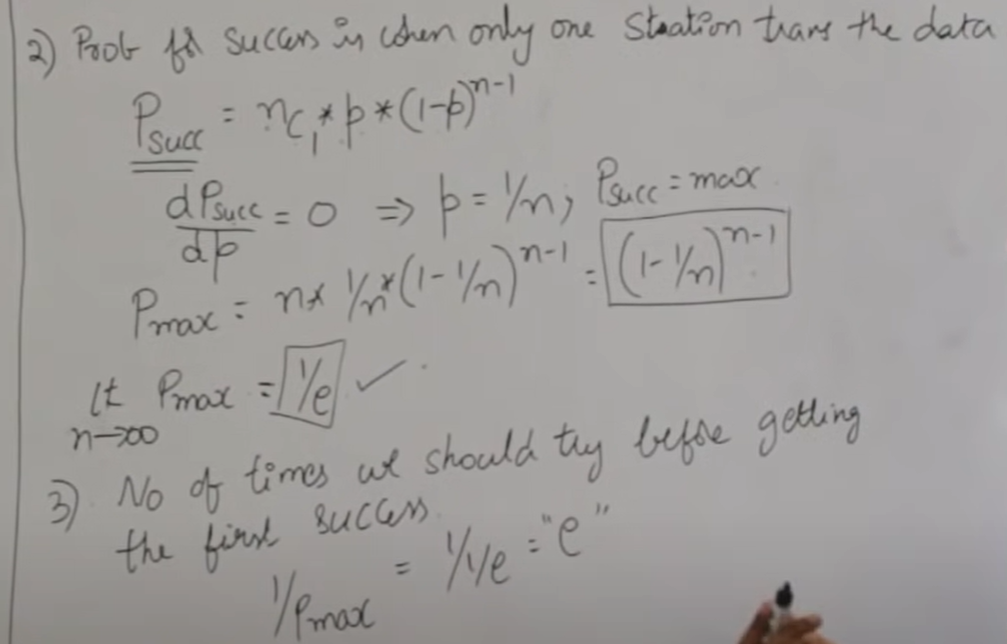 2) Prob for success is when only one Staation trans the data
P_succ = nC₁ * p * (1-p)^{n-1}
dP_succ/dp = 0 ⇒ p = 1/n; P_succ = max
P_max = n * 1/n * (1 - 1/n)^{n-1} = (1 - 1/n)^{n-1}
lt n→∞ P_max = 1/e ✓
3) No of times we should try before getting
the first success.
1/P_max = 1/1/e = "e"